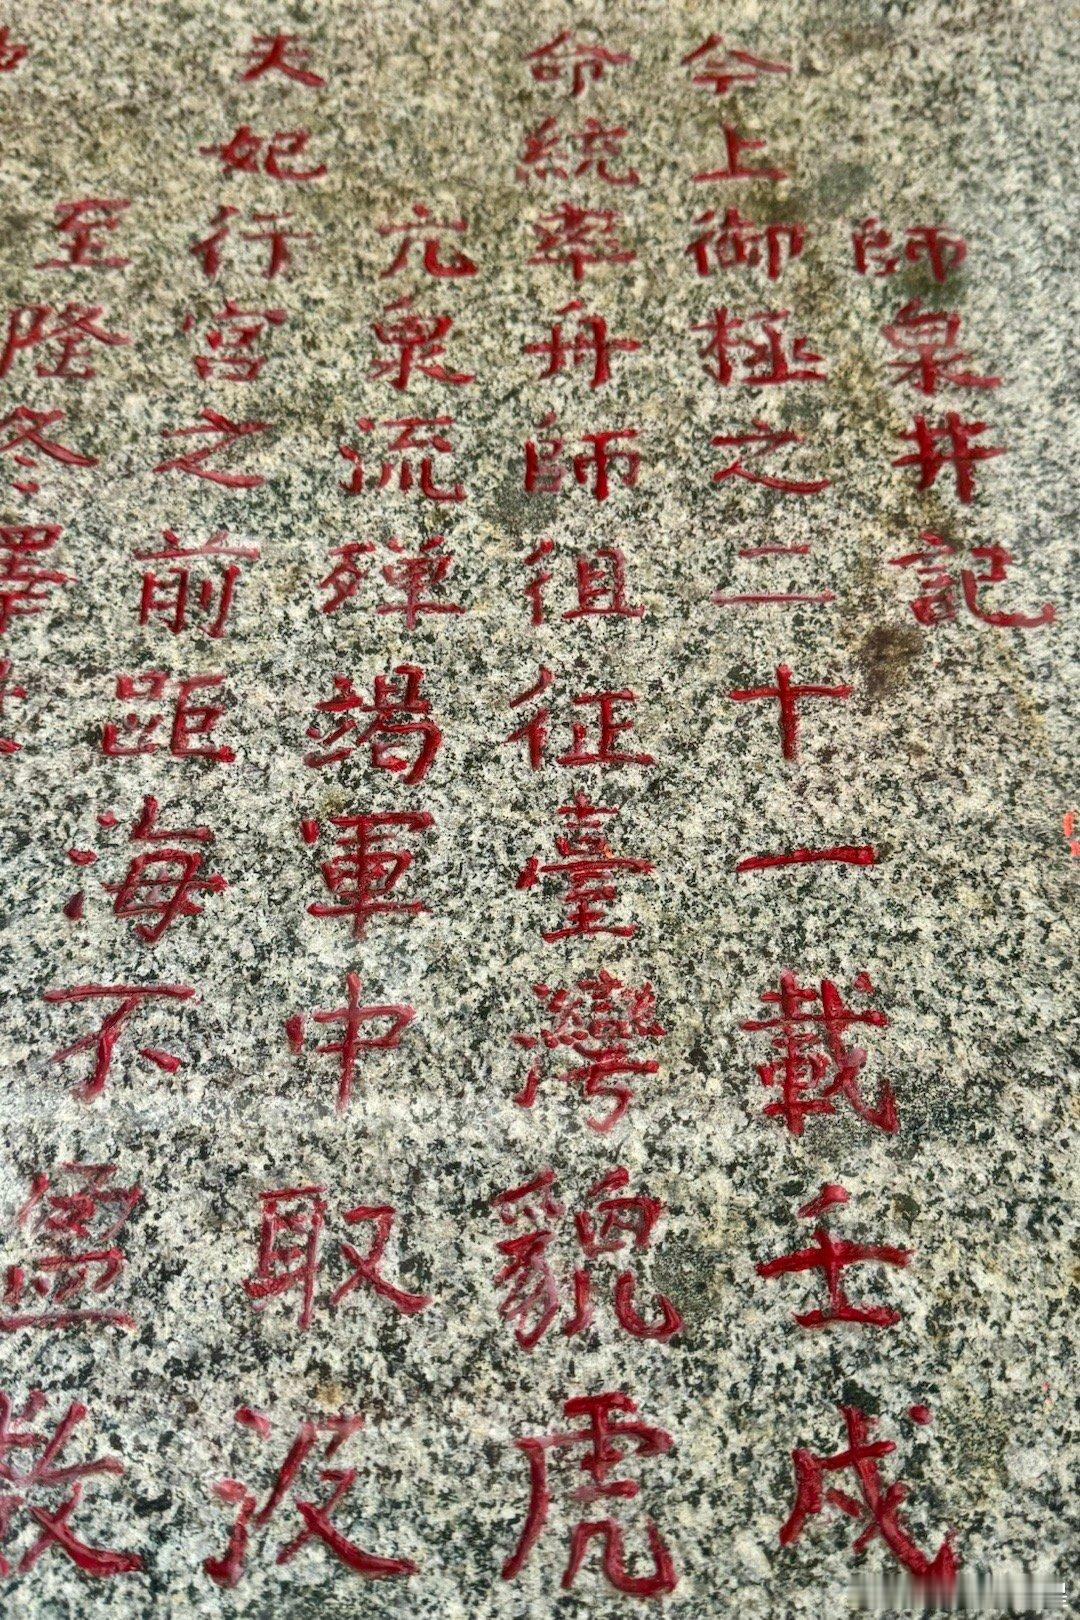 師泉井記
今上御極之二十一載壬戌
命統率舟師徂征臺灣貔虎
亢泉流殫竭軍中取汲
天妃行宮之前距海不
至隆冬澤